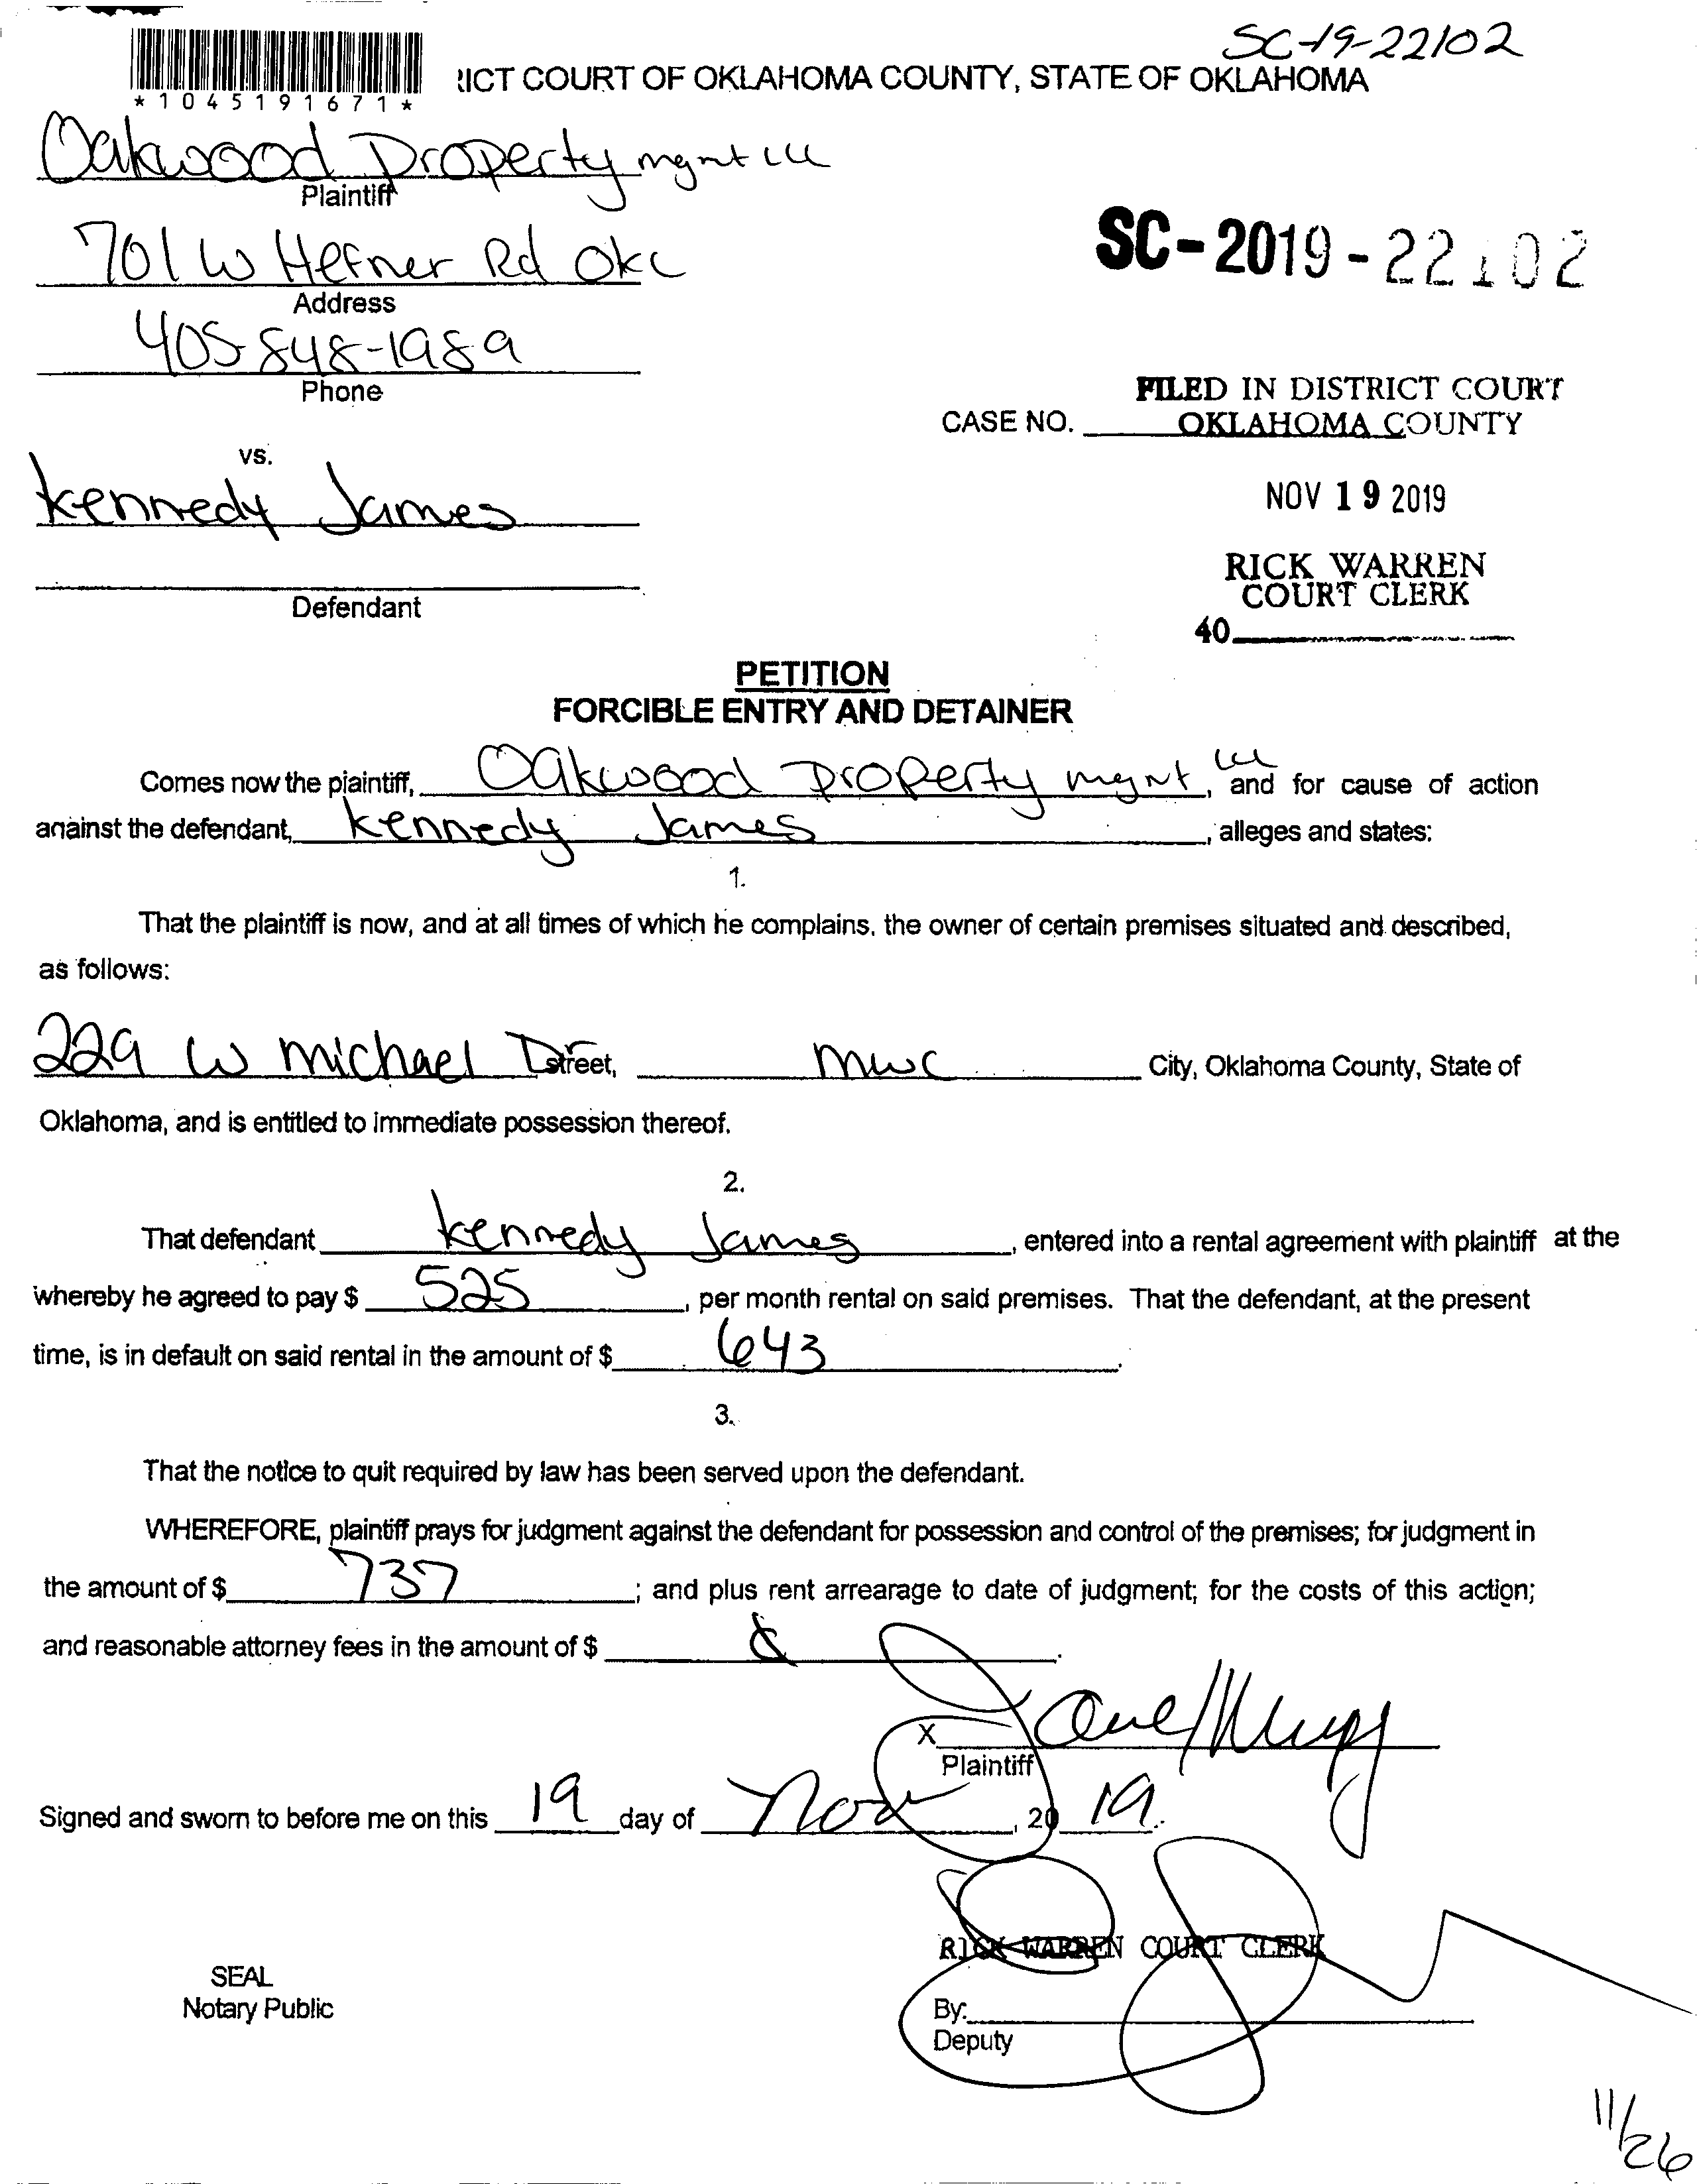 SC-19-22102
*1045191671*
RICT COURT OF OKLAHOMA COUNTY, STATE OF OKLAHOMA
Oakwood Property mgmt LLC
Plaintiff
701 W Hefner Rd OKC
Address
SC-2019-22102
405-848-1989
Phone
FILED IN DISTRICT COURT
CASE NO. OKLAHOMA COUNTY
vs.
Kennedy James
NOV 19 2019
RICK WARREN
COURT CLERK
Defendant
40
PETITION
FORCIBLE ENTRY AND DETAINER
Comes now the plaintiff, Oakwood Property mgnt LLC, and for cause of action
against the defendant, Kennedy James, alleges and states:
1.
That the plaintiff is now, and at all times of which he complains, the owner of certain premises situated and described,
as follows:
229 W Michael D Street, MWC City, Oklahoma County, State of
Oklahoma, and is entitled to immediate possession thereof.
2.
That defendant Kennedy James, entered into a rental agreement with plaintiff at the
whereby he agreed to pay $ 525, per month rental on said premises. That the defendant, at the present
time, is in default on said rental in the amount of $ 643.
3.
That the notice to quit required by law has been served upon the defendant.
WHEREFORE, plaintiff prays for judgment against the defendant for possession and control of the premises; for judgment in
the amount of $ 737; and plus rent arrearage to date of judgment; for the costs of this action;
and reasonable attorney fees in the amount of $
X
Plaintiff
Signed and sworn to before me on this 19 day of Nov, 20 19.
RICK WARREN COURT CLERK
SEAL
Notary Public
By:
Deputy
11/26